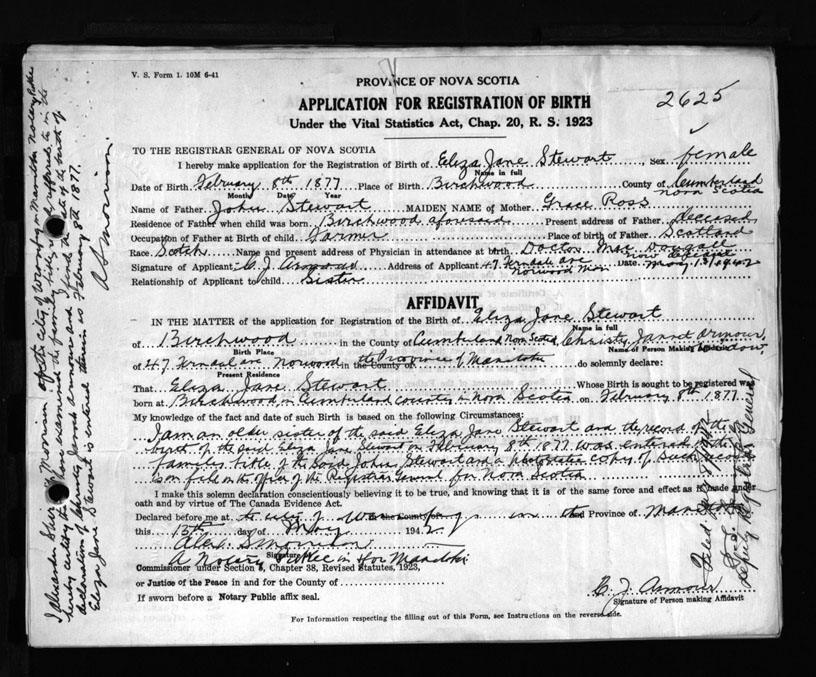 V. S. Form 1. 10M 6-41
PROVINCE OF NOVA SCOTIA
APPLICATION FOR REGISTRATION OF BIRTH
2625
Under the Vital Statistics Act, Chap. 20, R. S. 1923
TO THE REGISTRAR GENERAL OF NOVA SCOTIA
I hereby make application for the Registration of Birth of Eliza Jane Stewart, Sex female
Name in full
Date of Birth February 8th 1877 Place of Birth Birchwood County of Cumberland
Month Date Year Nova Scotia
Name of Father John Stewart MAIDEN NAME of Mother Grace Ross
Residence of Father when child was born Birchwood aforesaid Present address of Father deceased
Occupation of Father at Birth of child Farmer Place of birth of Father Scotland
Race Scotch Name and present address of Physician in attendance at birth Doctor Mac Dougall
now
Signature of Applicant C. J. Address of Applicant 47 ave Date May 13/1942
Norwood Man
Relationship of Applicant to child Sister
AFFIDAVIT
IN THE MATTER of the application for Registration of the Birth of Eliza Jane Stewart
Name in full
of Birchwood in the County of Cumberland Nova Scotia Christy Armour,
Birth Place Name of Person Making Affidavit widow,
of 47 Norwood in the County of the Province of Manitoba do solemnly declare:
Present Residence
That Eliza Jane Stewart Whose Birth is sought to be registered was
born at Birchwood in Cumberland County in Nova Scotia on February 8th 1877
My knowledge of the fact and date of such Birth is based on the following Circumstances:
I am an older sister of the said Eliza Jane Stewart and the record of the
birth of the said Eliza Jane Stewart on February 8th 1877 was entered in the
families bible of the said John Stewart and a photostatic copy of such record
is on file in the office of the Registrar General for Nova Scotia
I make this solemn declaration conscientiously believing it to be true, and knowing that it is of the same force and effect as if made under
oath and by virtue of The Canada Evidence Act.
Declared before me at the city of Winnipeg in the Province of Manitoba
this 13th day of May 1942
Alex. S. Morrison
Signature
A Notary Public in & for Manitoba
Commissioner under Section 6, Chapter 38, Revised Statutes, 1923,
or Justice of the Peace in and for the County of
If sworn before a Notary Public affix seal.
C. J. Armour
Signature of Person making Affidavit
For Information respecting the filling out of this Form, see Instructions on the reverse side.
I Alexander Morrison of the City of Winnipeg in Manitoba Notary Public
hereby certify that I have examined the family bible referred to in the
declaration of Christy Armour and I find the date of the birth of
Eliza Jane Stewart is entered therein as February 8th 1877.
A S Morrison
Filed 1942
Deputy Registrar General